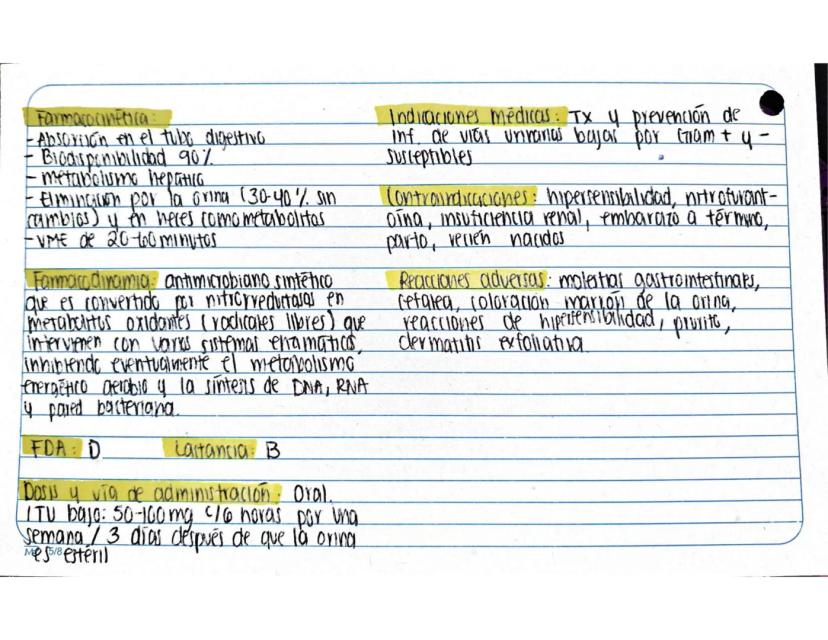 Farmacocinética:
- Absorción en el tubo digestivo
- Biodisponibilidad 90%
- metabolismo hepático
- Eliminación por la orina (30-40% sin
cambios) y en heces como metabolitos
- VME de 20-60 minutos
Farmacodinamia: antimicrobiano sintético
que es convertido por nitrorredutasas en
metabolitos oxidantes (radicales libres) que
intervienen con varios sistemas enzimáticos,
inhibiendo eventualmente el metabolismo
energético aerobio y la síntesis de DNA, RNA
y pared bacteriana.
FDA: D Lactancia: B
Dosis y vía de administración: Oral.
ITU baja: 50-100 mg c/6 horas por una
semana / 3 días después de que la orina
es estéril
5/8
Indicaciones médicas: TX y prevención de
inf. de vías urinarias bajas por Gram + y -
susceptibles
Contraindicaciones: hipersensibilidad, nitrofurant-
oína, insuficiencia renal, embarazo a término,
parto, recién nacidos
Reacciones adversas: molestias gastrointestinales,
cefalea, coloración marrón de la orina,
reacciones de hipersensibilidad, prurito,
dermatitis exfoliativa.